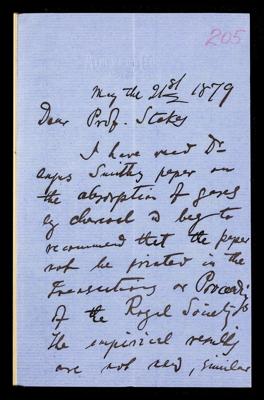 205
May the 21st 1879
Dear Prof. Stokes
I have read Dr
Angus Smith's paper on
the absorption of gases
by charcoal & beg to
recommend that the paper
not be printed in the
Transactions or Proceedings
of the Royal Society
The empirical results
are not new, similar